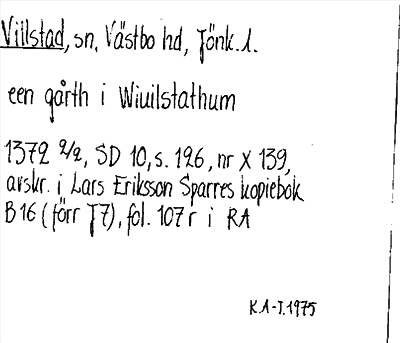 Villstad, sn, Västbo hd, Jönk. l.
een gårth i Wiuilstathum
1372 2/2, SD 10, s. 126, nr X 139,
avskr. i Lars Eriksson Sparres kopiebok
B 16 (förr J7), fol. 107 r i RA
K.A-T. 1975